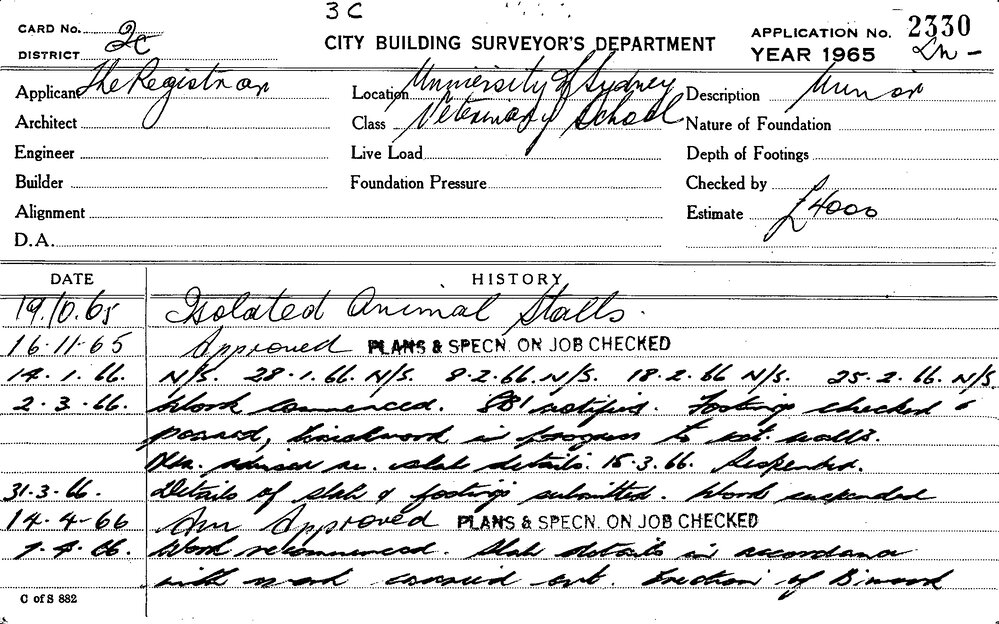 3 C
CARD No. 2c
DISTRICT
CITY BUILDING SURVEYOR'S DEPARTMENT
APPLICATION No. 2330
YEAR 1965
Applicant The Registrar
Location University of Sydney
Description Minor
Architect
Class Veterinary School
Nature of Foundation
Engineer
Live Load
Depth of Footings
Builder
Foundation Pressure
Checked by
Alignment
Estimate £4000
D.A.
DATE HISTORY
19.10.65 Isolated Animal Stalls.
16.11.65 Approved PLANS & SPECN. ON JOB CHECKED
14.1.66. N/S. 28.1.66. N/S. 8.2.66. N/S. 18.2.66 N/S. 25.2.66. N/S.
2.3.66. Work commenced. notified. Footings checked &
poured, brickwork in progress to ext. walls.
re. slab details. 15.3.66. Suspended.
31.3.66. Details of slab & footings submitted. Work suspended
14.4.66 Am Approved PLANS & SPECN. ON JOB CHECKED
Work recommenced. Slab details in accordance
with work carried out. Erection of
C of S 882